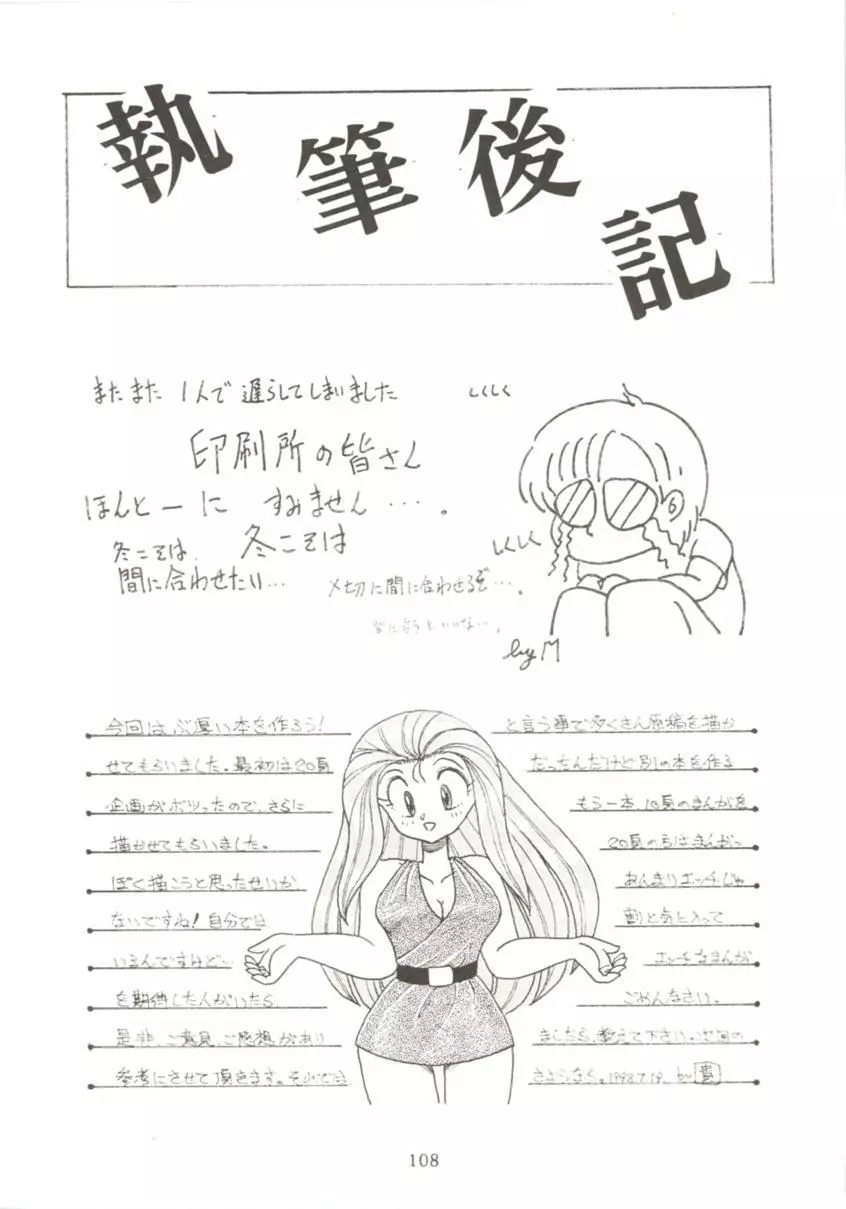 執筆後記
またまた 1人で遅らしてしまいました
しくしく
印刷所の皆さん
ほんとーに すみません…。
しくしく
冬こそは 冬こそは
間に合わせたい…
〆切に間に合わせるぞ…。
by M
今回はぶ厚い本を作ろう! と言う事で多くさん原稿を描か
せてもらいました。最初は20頁 だったんだけど別の本を作る
企画がボツったので、さらに もう一本、10頁のまんがを
描かせてもらいました。 20頁の方はまんがっ
ぽく描こうと思ったせいか あんまりエッチじゃ
ないですね! 自分では 割と気に入って
いるんですけど… エッチなまんが
を期待した人がいたら ごめんなさい。
是非、ご意見、ご感想があり ましたら、教えて下さい。次回の
参考にさせて頂きます。それでは さようなら。1998.7.19. by 貴
108